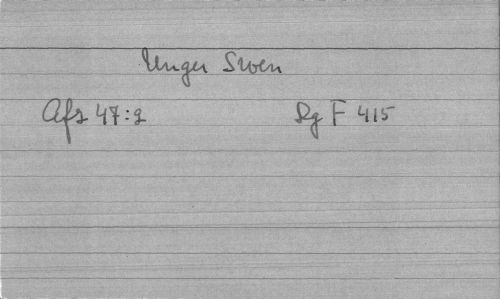 Unger Sven
Afs 47:2
Rg F 415